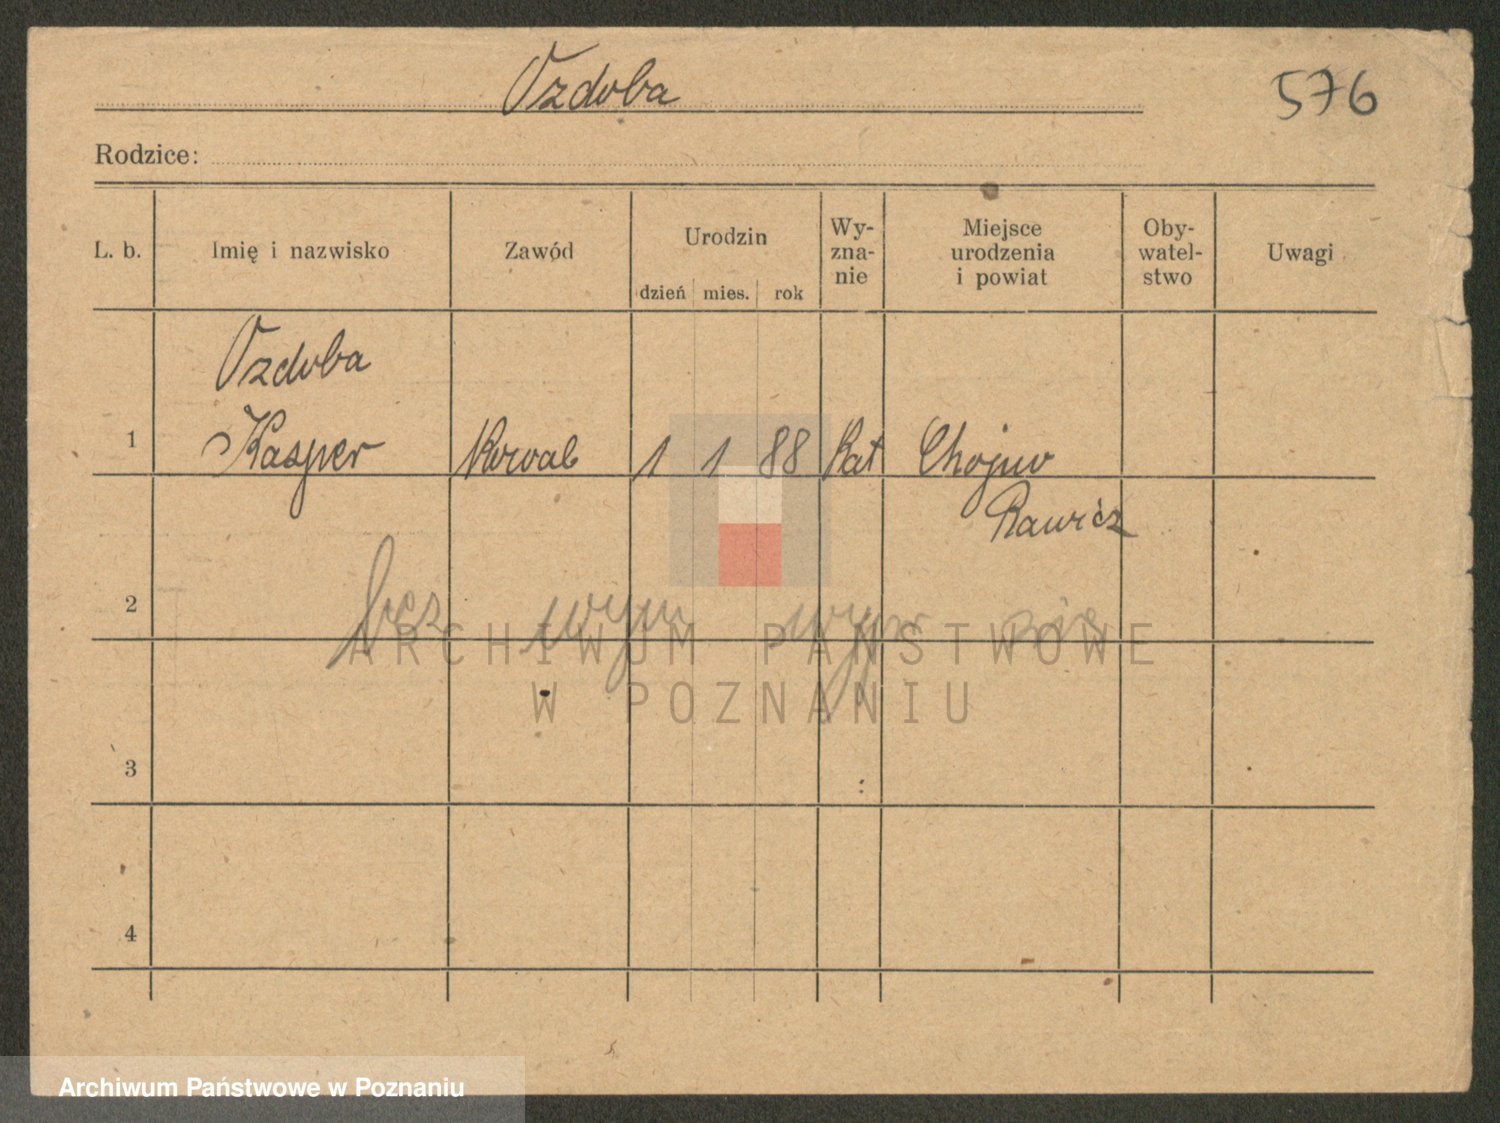 Ozdoba
576
Rodzice:
L. b. Imię i nazwisko Zawód Urodzin dzień mies. rok Wy-zna-nie Miejsce urodzenia i powiat Oby-watel-stwo Uwagi
Ozdoba
1 Kasper Kowal 1 1 88 Kat Chojno
Rawicz
2 bez wym
3
4
ARCHIWUM PAŃSTWOWE
W POZNANIU
Archiwum Państwowe w Poznaniu